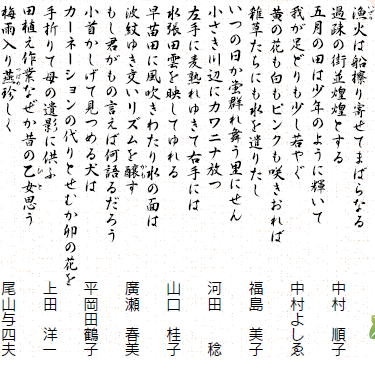 漁火は船擦り寄せてまばらなる
過疎の街並煌煌とする
中村 順子
五月の田は少年のように輝いて
我が足どりも少し若やぐ
中村よしゑ
黄の花も白もピンクも咲きおれば
雑草たちにも水を遣りたし
福島 美子
いつの日か蛍群れ舞う里にせん
小さき川辺にカワニナ放つ
河田 稔
左手に麦熟れゆきて右手には
水張田雲を映してゆれる
山口 桂子
早苗田に風吹きわたり水の面は
波紋ゆき交いリズムを醸す
廣瀬 春美
もし君がもの言えば何語るだろう
小首かしげて見つめる犬は
平岡田鶴子
カーネーションの代りとせむか卯の花を
手折りて母の遺影に供ふ
上田 洋一
田植え作業なぜか昔の乙女思う
梅雨入り燕珍しく
尾山与四夫